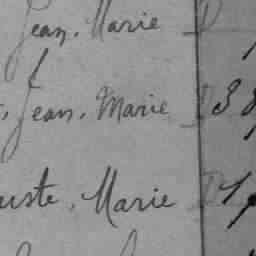 Jean, Marie D
, Jean, Marie D 3
uste, Marie D 7